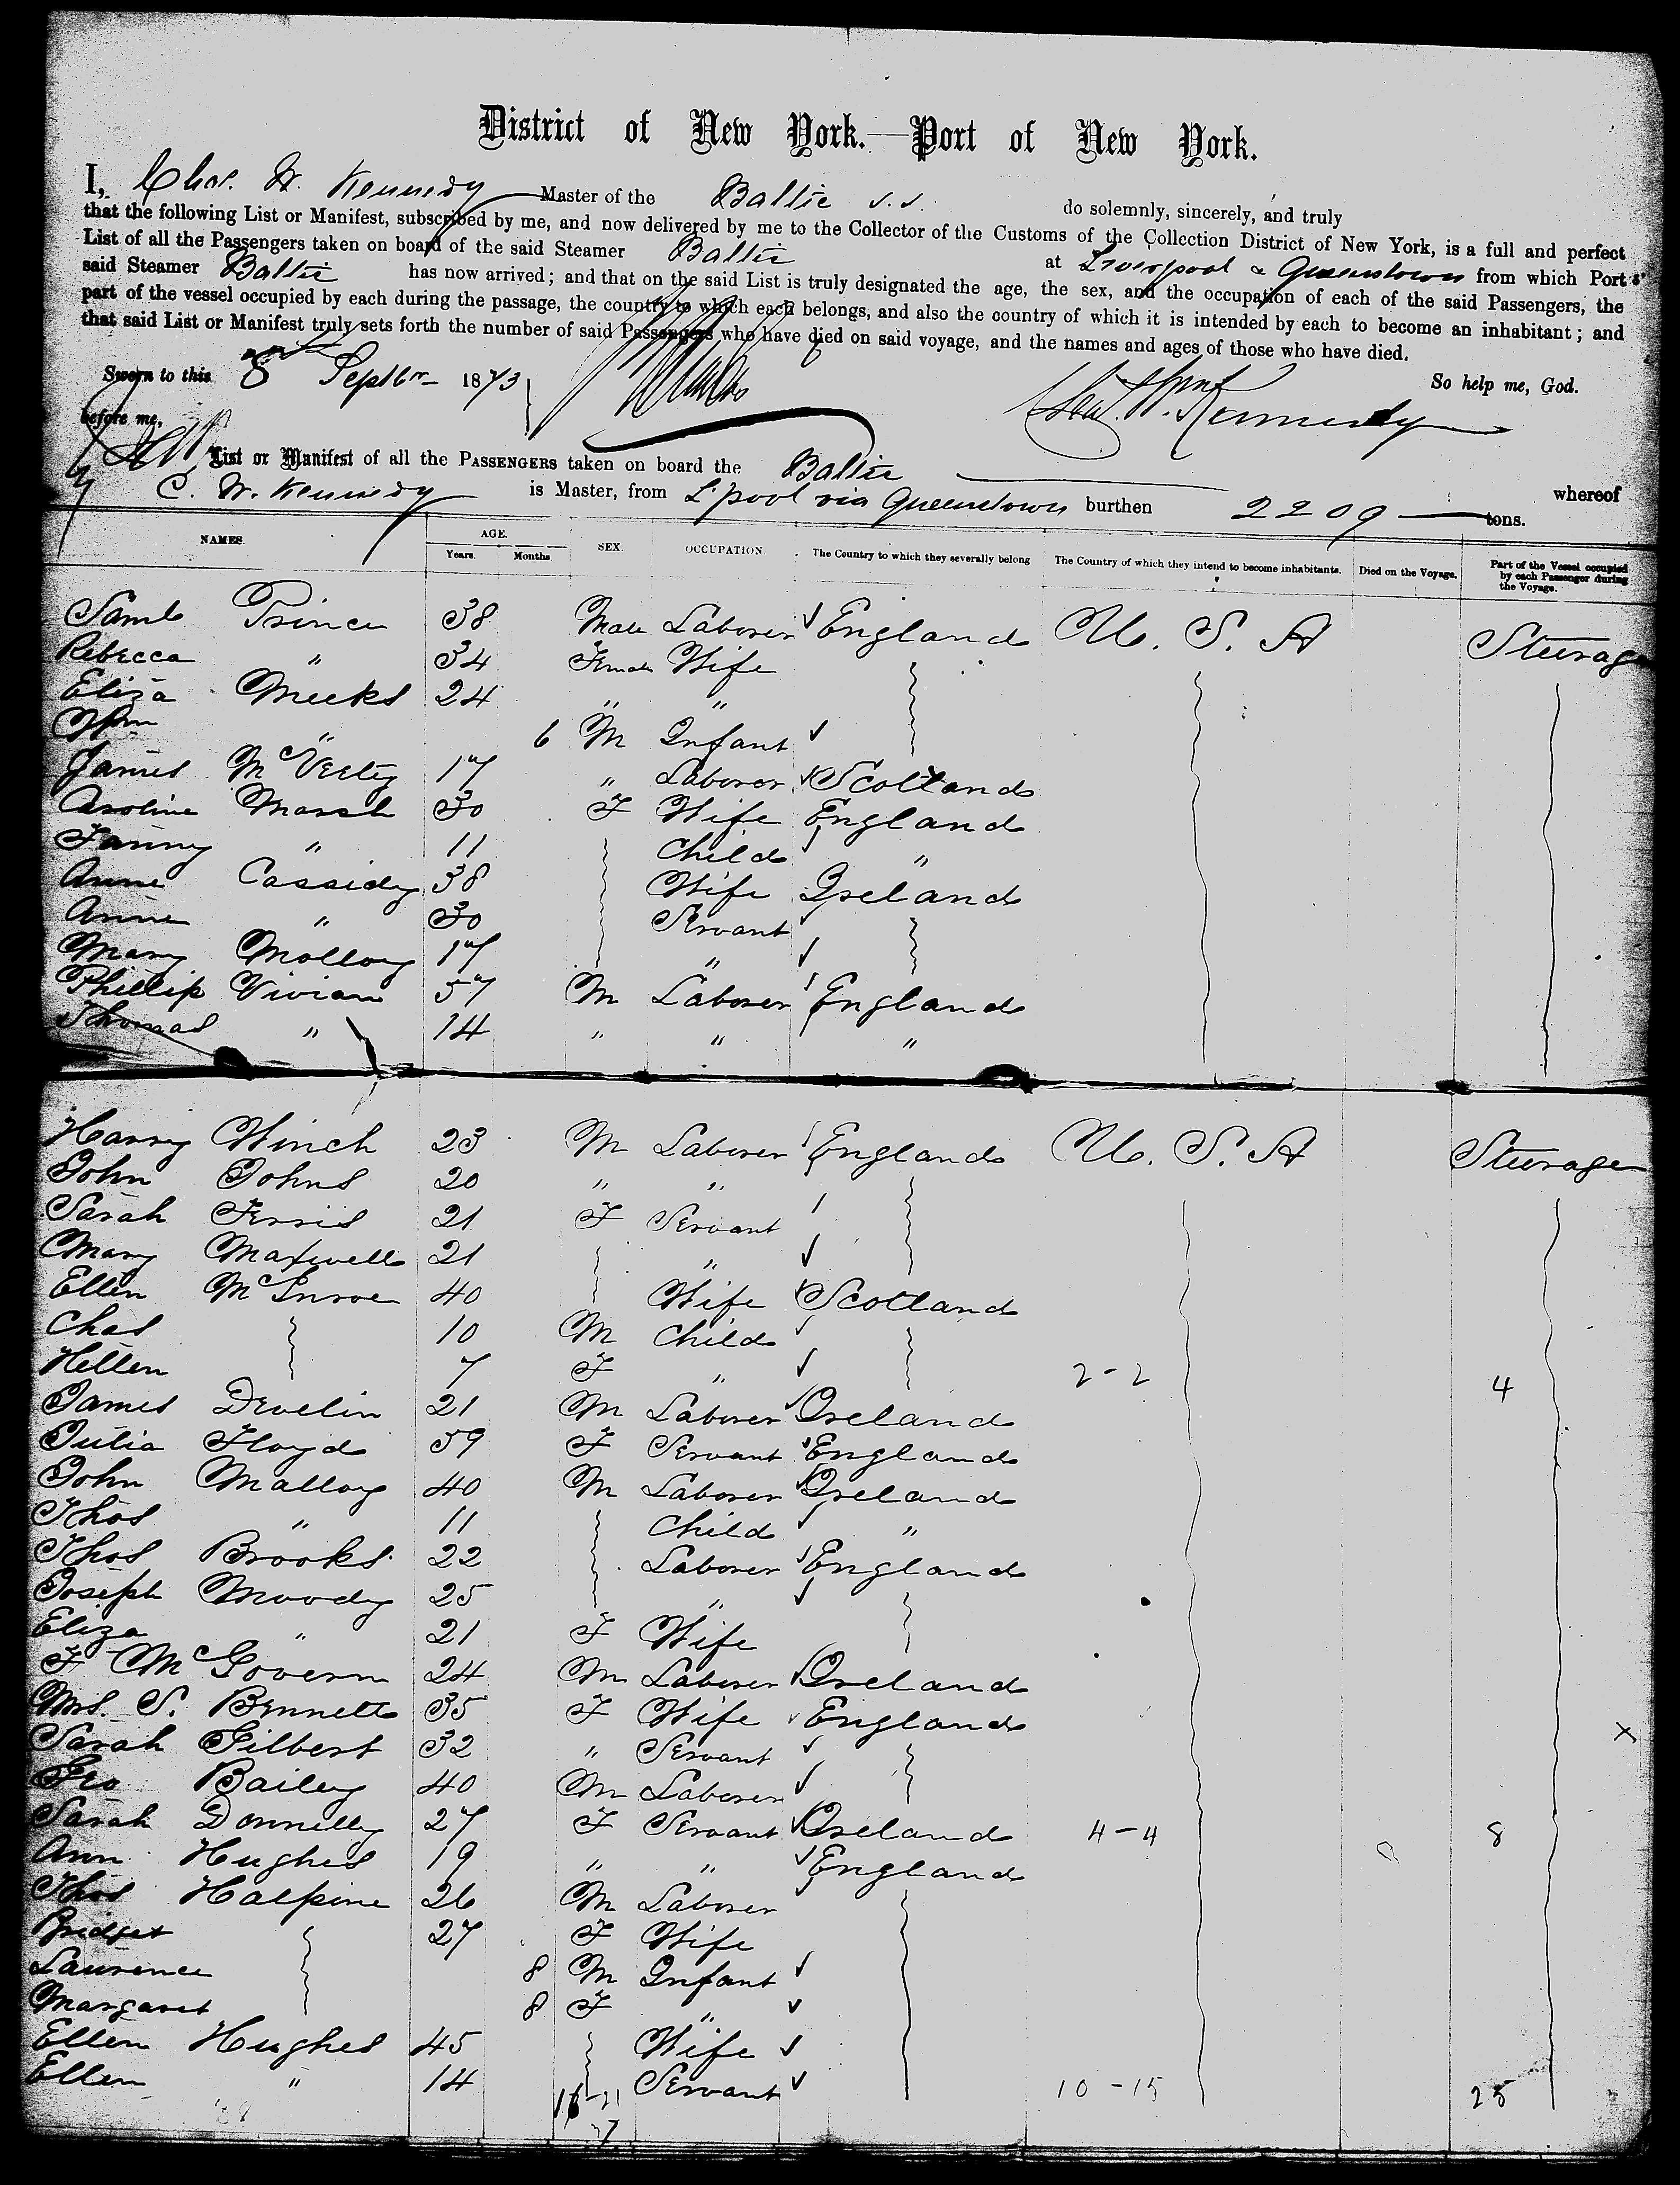 District of New York.—Port of New York.
I, Chas. W. Kennedy Master of the Baltic S.S. do solemnly, sincerely, and truly
that the following List or Manifest, subscribed by me, and now delivered by me to the Collector of the Customs of the Collection District of New York, is a full and perfect
List of all the Passengers taken on board of the said Steamer Baltic at Liverpool & Queenstown from which Ports
said Steamer Baltic has now arrived; and that on the said List is truly designated the age, the sex, and the occupation of each of the said Passengers, the
part of the vessel occupied by each during the passage, the country to which each belongs, and also the country of which it is intended by each to become an inhabitant; and
that said List or Manifest truly sets forth the number of said Passengers who have died on said voyage, and the names and ages of those who have died.
Sworn to this 8 Septbr 1873 So help me, God.
before me, Kennedy
List or Manifest of all the PASSENGERS taken on board the Baltic whereof
C. W. Kennedy is Master, from L'pool via Queenstown burthen 2209 tons.
NAMES. AGE. Years. Months SEX. OCCUPATION. The Country to which they severally belong The Country of which they intend to become inhabitants. Died on the Voyage. Part of the Vessel occupied by each Passenger during the Voyage.
Saml Prince 38 Male Laborer England U. S. A Steerage
Rebecca " 34 Female Wife
Eliza Meeks 24 " "
Wm " 6 M Infant
James McVerty 17 " Laborer Scotland
Caroline Marsh 30 F Wife England
Fanny " 11 Child "
Anne Cassidy 38 Wife Ireland
Anne " 30 Servant
Mary Molloy 17 "
Phillip Vivian 57 M Laborer England
Thomas " 14 " " "
Harry Winch 23 M Laborer England U. S. A Steerage
John Johns 20 " "
Sarah Ferris 21 F Servant
Mary Maxwell 21 "
Ellen McInroe 40 Wife Scotland
Chas 10 M Child
Hellen 7 F " 2-2 4
James Develin 21 M Laborer Ireland
Julia Floyd 59 F Servant England
John Malloy 40 M Laborer Ireland
Thos " 11 Child "
Thos Brooks 22 Laborer England
Joseph Moody 25 "
Eliza " 21 F Wife
F McGovern 24 M Laborer Ireland
Mrs. S. Bennett 35 F Wife England
Sarah Gilbert 32 " Servant X
Geo Bailey 40 M Laborer
Sarah Donnelly 27 F Servant Ireland 4-4 8
Ann Hughes 19 " " England
Thos Halpine 26 M Laborer
Bridget 27 F Wife
Laurence 8 M Infant
Margaret 8 F "
Ellen Hughes 45 Wife
Ellen " 14 Servant 10-15 25